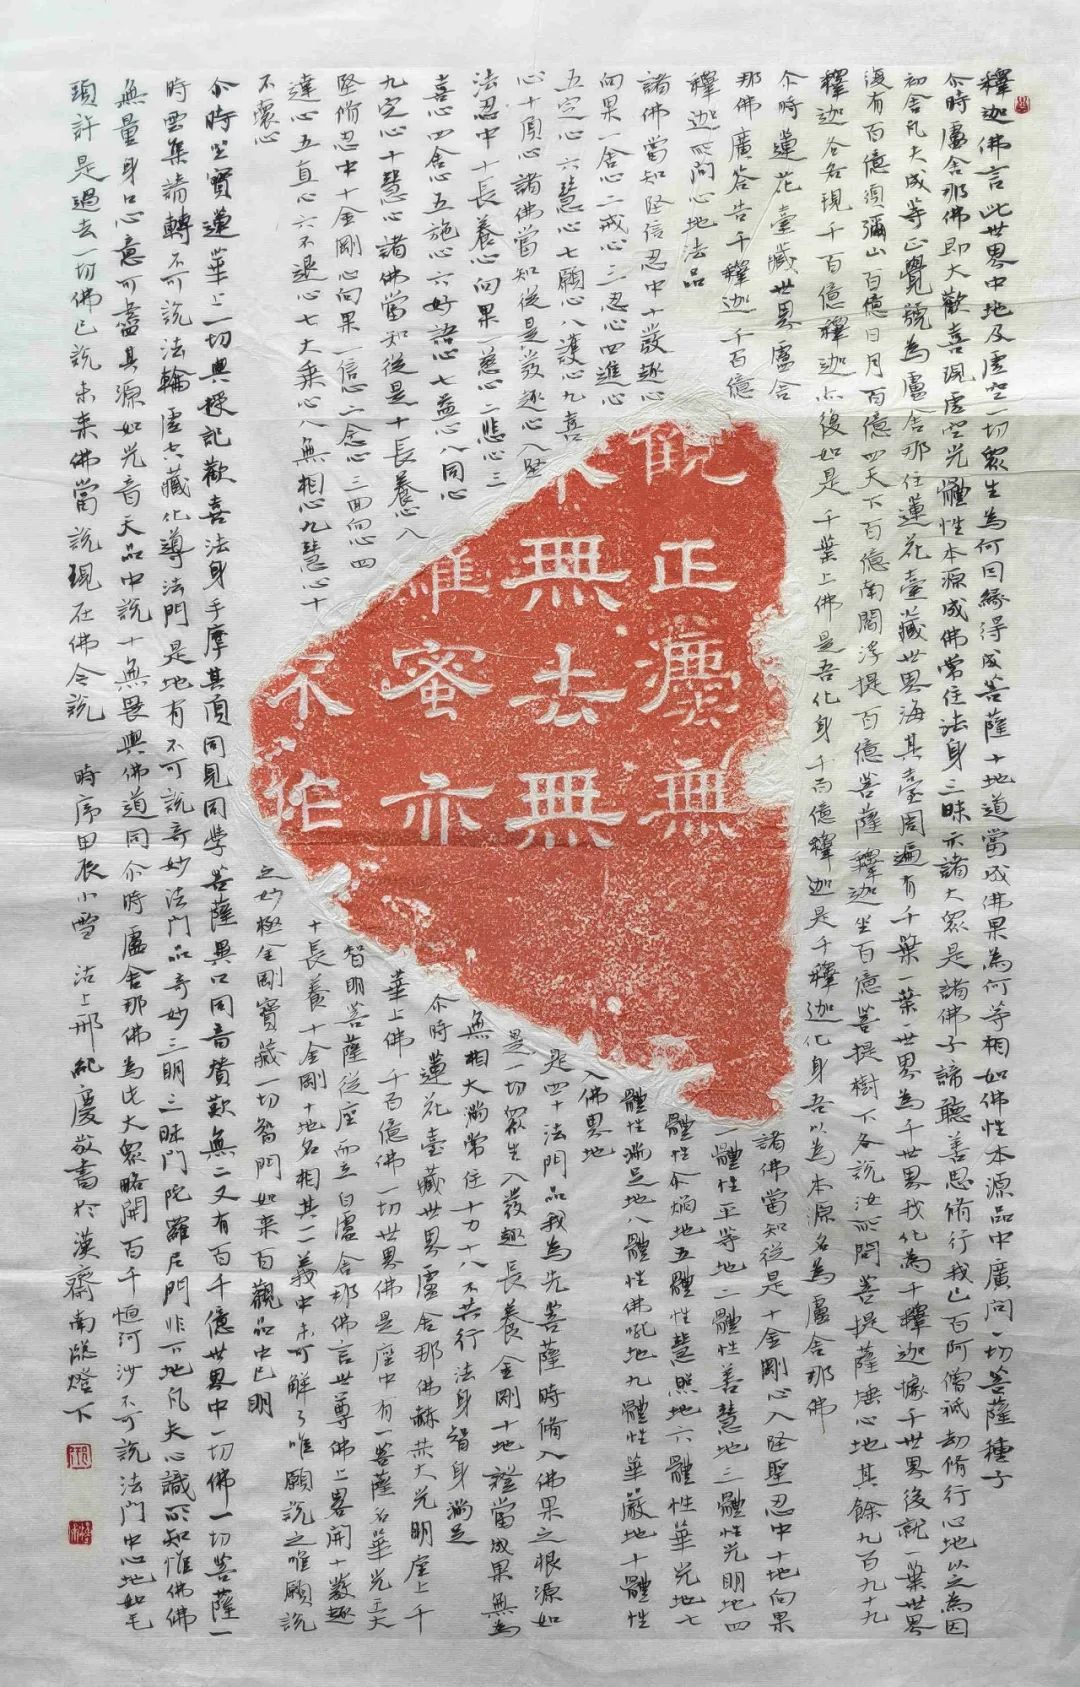 釋迦佛言此世界中地及虛空一切眾生為何因緣得成菩薩十地道當成佛果為何等相如佛性本源品中廣問一切菩薩種子
尒時盧舍那佛即大歡喜現虛空光體性本源成佛常住法身三昧示諸大眾是諸佛子諦聽善思脩行我已百阿僧祇劫脩行心地以之為因
初舍凡夫成等正覺號為盧舍那住蓮花臺藏世界海其臺周遍有千葉一葉一世界為千世界我化為千釋迦據千世界後就一葉世界
復有百億須彌山百億日月百億四天下百億南閻浮提百億菩薩釋迦坐百億菩提樹下各說汝所問菩提薩埵心地其餘九百九十九
釋迦各各現千百億釋迦亦復如是千葉上佛是吾化身千百億釋迦是千釋迦化身吾以為本源名為盧舍那佛
尒時蓮花臺藏世界盧舍
那佛廣答告千釋迦千百億
釋迦所問心地法品
諸佛當知堅信忍中十發趣心
向果一舍心二戒心三忍心四進心
五定心六慧心七願心八護心九喜
心十頂心諸佛當知從是發趣心入堅
法忍中十長養心向果一慈心二悲心三
喜心四舍心五施心六好語心七益心八同心
九定心十慧心諸佛當知從是十長養心入
堅脩忍中十金剛心向果一信心二念心三迴向心四
達心五直心六不退心七大乘心八無相心九慧心十
不壞心
諸佛當知從是十金剛心入堅聖忍中十地向果
一體性平等地二體性善慧地三體性光明地四
體性尒焰地五體性慧照地六體性華光地七
體性滿足地八體性佛吼地九體性華嚴地十體性
入佛界地
是四十法門品我為先菩薩時脩入佛果之根源如
是一切眾生入發趣長養金剛十地證當成果無為
無相大滿常住十力十八不共行法身智身滿足
尒時蓮花臺藏世界盧舍那佛赫赫大光明座上千
華上佛千百億佛一切世界佛是座中有一菩薩名華光王大
智明菩薩從座而立白盧舍那佛言世尊佛上畧開十發趣
十長養十金剛十地名相其一一義中未可解了唯願說之唯願說
之妙極金剛寶藏一切智門如來百觀品中已明
尒時坐寶蓮華上一切與授記歡喜法身手摩其頂同見同學菩薩異口同音贊歎無二又有百千億世界中一切佛一切菩薩一
時雲集請轉不可說法輪虛空藏化導法門是地有不可說奇妙法門品奇妙三明三昧門陀羅尼門非下地凡夫心識所知惟佛佛
無量身口心意可盡其源如光音天品中說十無畏與佛道同尒時盧舍那佛為此大眾略開百千恒河沙不可說法門中心地如毛
頭許是過去一切佛已說未來佛當說現在佛今說 時序甲辰小雪 沽上邢紀慶敬書於漢齋南牕燈下
觀正無
無去無
蜜亦
不作